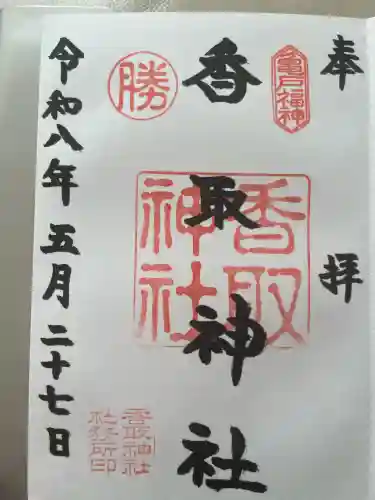 奉拝
亀戸福神
香取神社
香取神社
勝
香取神社
社務所印
令和八年五月二十七日